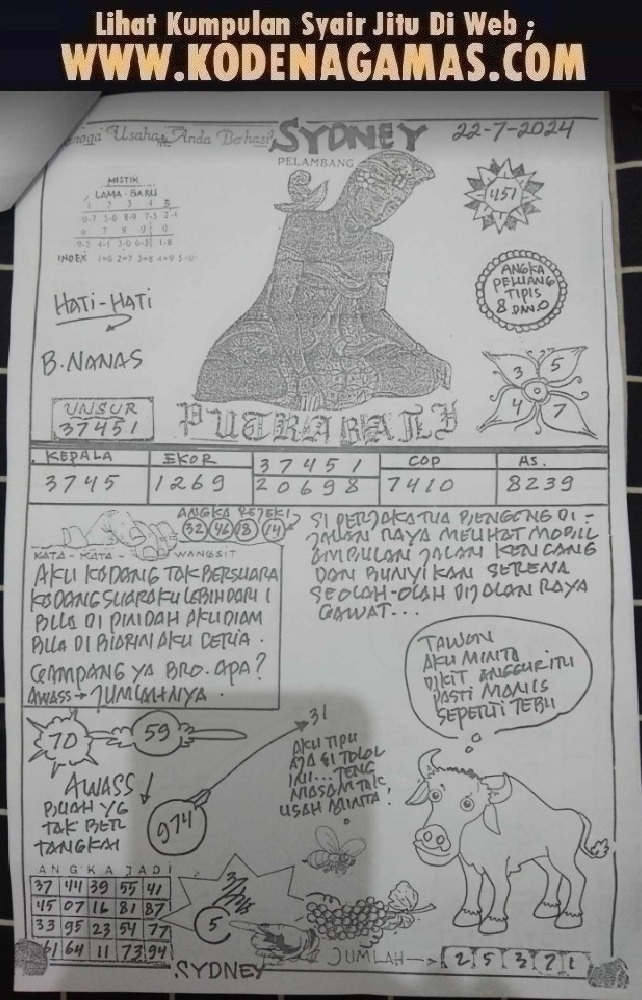 Lihat Kumpulan Syair Jitu Di Web ;
WWW.KODENAGAMAS.COM
Usaha Anda Berhasil SYDNEY 22-7-2024
PELAMBANG
MISTIK
LAMA - BARU
1 2 3 4 5
6 7 8 9 0
INDEX 1=6 2=7 3=8 4=9 5=0
451
ANGKA
PELUANG
TIPIS
8 DAN 0
HATI-HATI
B. NANAS
3 5
4 7
UNSUR
37451
PUTRA BALI
KEPALA EKOR 37451 COP AS.
3745 1269 20698 7410 8239
ANGKA REJEKI
32 46 18 14
KATA - KATA - WANGSIT
AKU KADANG TAK BERSUARA
KADANG SUARAKU LEBIH DARI 1
BILA DI PINDAH AKU DIAM
BILA DI BIARIN AKU CERIA.
GAMPANG YA BRO. APA?
AWASS → JUMLAHNYA.
SI PERJAKA TUA BENGONG DI-
JALAN RAYA MELIHAT MOBIL
AMBULAN JALAN KENCANG
DAN BUNYIKAN SERENA
SEOLAH-OLAH DIJALAN RAYA
GAWAT...
TAWON
AKU MINTA
DIKIT ANGGUR ITU
PASTI MANIS
SEPERTI TEBU
70
59
31
AKU TIPU
AJA SI TOLOL
INI... TENG
MASAM TAK
USAH MINTA!
AWASS
BUAH YG
TAK BER
TANGKAI
974
ANGKA JADI
37 44 39 55 41
45 07 16 81 87
33 95 23 54 77
61 64 11 73 94
5
SYDNEY
JUMLAH → 2 5 3 7 1